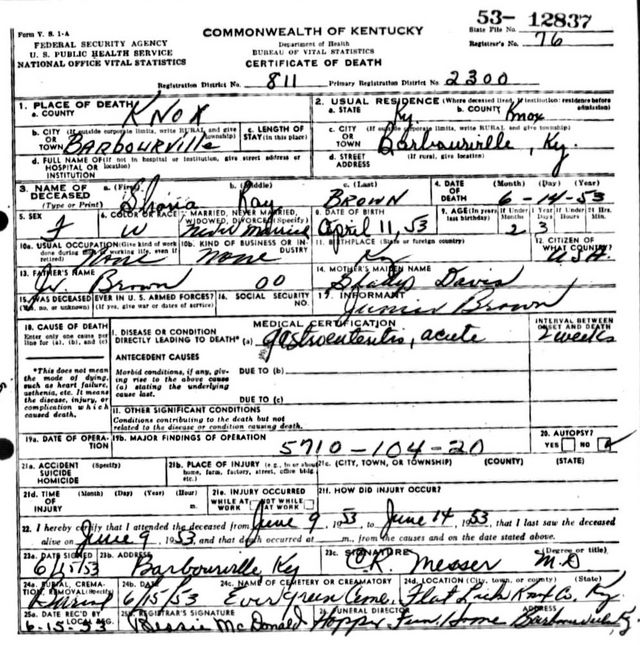 Form V. S. 1-A
FEDERAL SECURITY AGENCY
U. S. PUBLIC HEALTH SERVICE
NATIONAL OFFICE VITAL STATISTICS
COMMONWEALTH OF KENTUCKY
Department of Health
BUREAU OF VITAL STATISTICS
CERTIFICATE OF DEATH
53- 12837
State File No.
Registrar's No. 76
Registration District No. 811 Primary Registration District No. 2300
1. PLACE OF DEATH
a. COUNTY KNOX
2. USUAL RESIDENCE (Where deceased lived. If institution: residence before admission)
a. STATE Ky. b. COUNTY Knox
b. CITY (If outside corporate limits, write RURAL and give township)
OR TOWN Barbourville
c. LENGTH OF STAY (in this place)
c. CITY (If outside corporate limits, write RURAL and give township)
OR TOWN Barbourville, Ky.
d. FULL NAME OF (If not in hospital or institution, give street address or
HOSPITAL OR INSTITUTION
d. STREET ADDRESS (If rural, give location)
3. NAME OF DECEASED (Type or Print)
a. (First) b. (Middle) Kay c. (Last) BROWN
4. DATE OF DEATH (Month) (Day) (Year) 6-14-53
5. SEX F
6. COLOR OR RACE W
7. MARRIED, NEVER MARRIED, WIDOWED, DIVORCED (Specify) Never married
8. DATE OF BIRTH April 11, 53
9. AGE (In years last birthday) If Under 1 Year Months 2 Days 3 If Under 24 Hrs. Hours Min.
10a. USUAL OCCUPATION (Give kind of work done during most of working life, even if retired) None
10b. KIND OF BUSINESS OR INDUSTRY None
11. BIRTHPLACE (State or foreign country) Ky
12. CITIZEN OF WHAT COUNTRY? USA.
13. FATHER'S NAME Brown 00
14. MOTHER'S MAIDEN NAME Davis
15. WAS DECEASED EVER IN U. S. ARMED FORCES?
(Yes, no, or unknown) (If yes, give war or dates of service)
16. SOCIAL SECURITY NO.
17. INFORMANT Junior Brown
18. CAUSE OF DEATH
Enter only one cause per line for (a), (b), and (c)
MEDICAL CERTIFICATION
I. DISEASE OR CONDITION DIRECTLY LEADING TO DEATH* (a) gastroenteritis, acute
INTERVAL BETWEEN ONSET AND DEATH
2 weeks
*This does not mean the mode of dying, such as heart failure, asthenia, etc. It means the disease, injury, or complication which caused death.
ANTECEDENT CAUSES
Morbid conditions, if any, giving rise to the above cause (a) stating the underlying cause last.
DUE TO (b)
DUE TO (c)
II. OTHER SIGNIFICANT CONDITIONS
Conditions contributing to the death but not related to the disease or condition causing death.
19a. DATE OF OPERATION
19b. MAJOR FINDINGS OF OPERATION
5710-104-20
20. AUTOPSY?
YES NO
21a. ACCIDENT SUICIDE HOMICIDE (Specify)
21b. PLACE OF INJURY (e.g., in or about home, farm, factory, street, office bldg. etc.)
21c. (CITY, TOWN, OR TOWNSHIP) (COUNTY) (STATE)
21d. TIME OF INJURY (Month) (Day) (Year) (Hour)
21e. INJURY OCCURRED
WHILE AT WORK NOT WHILE AT WORK
21f. HOW DID INJURY OCCUR?
22. I hereby certify that I attended the deceased from June 9, 1953, to June 14, 1953, that I last saw the deceased
alive on June 9, 1953, and that death occurred at m., from the causes and on the date stated above.
23a. DATE SIGNED 6/15/53
23b. ADDRESS Barbourville Ky
23c. SIGNATURE Messer (Degree or title) M.D
24a. BURIAL, CREMATION, REMOVAL (Specify) Burial
24b. DATE 6/15/53
24c. NAME OF CEMETERY OR CREMATORY Evergreen Cem.
24d. LOCATION (City, town, or county) (State) Flat Lick Knox Co. Ky.
25a. DATE REC'D BY LOCAL REG. 6-15-53
25b. REGISTRAR'S SIGNATURE Bessie McDonald
26. FUNERAL DIRECTOR Hopper Fun. Home
ADDRESS Barbourville Ky.